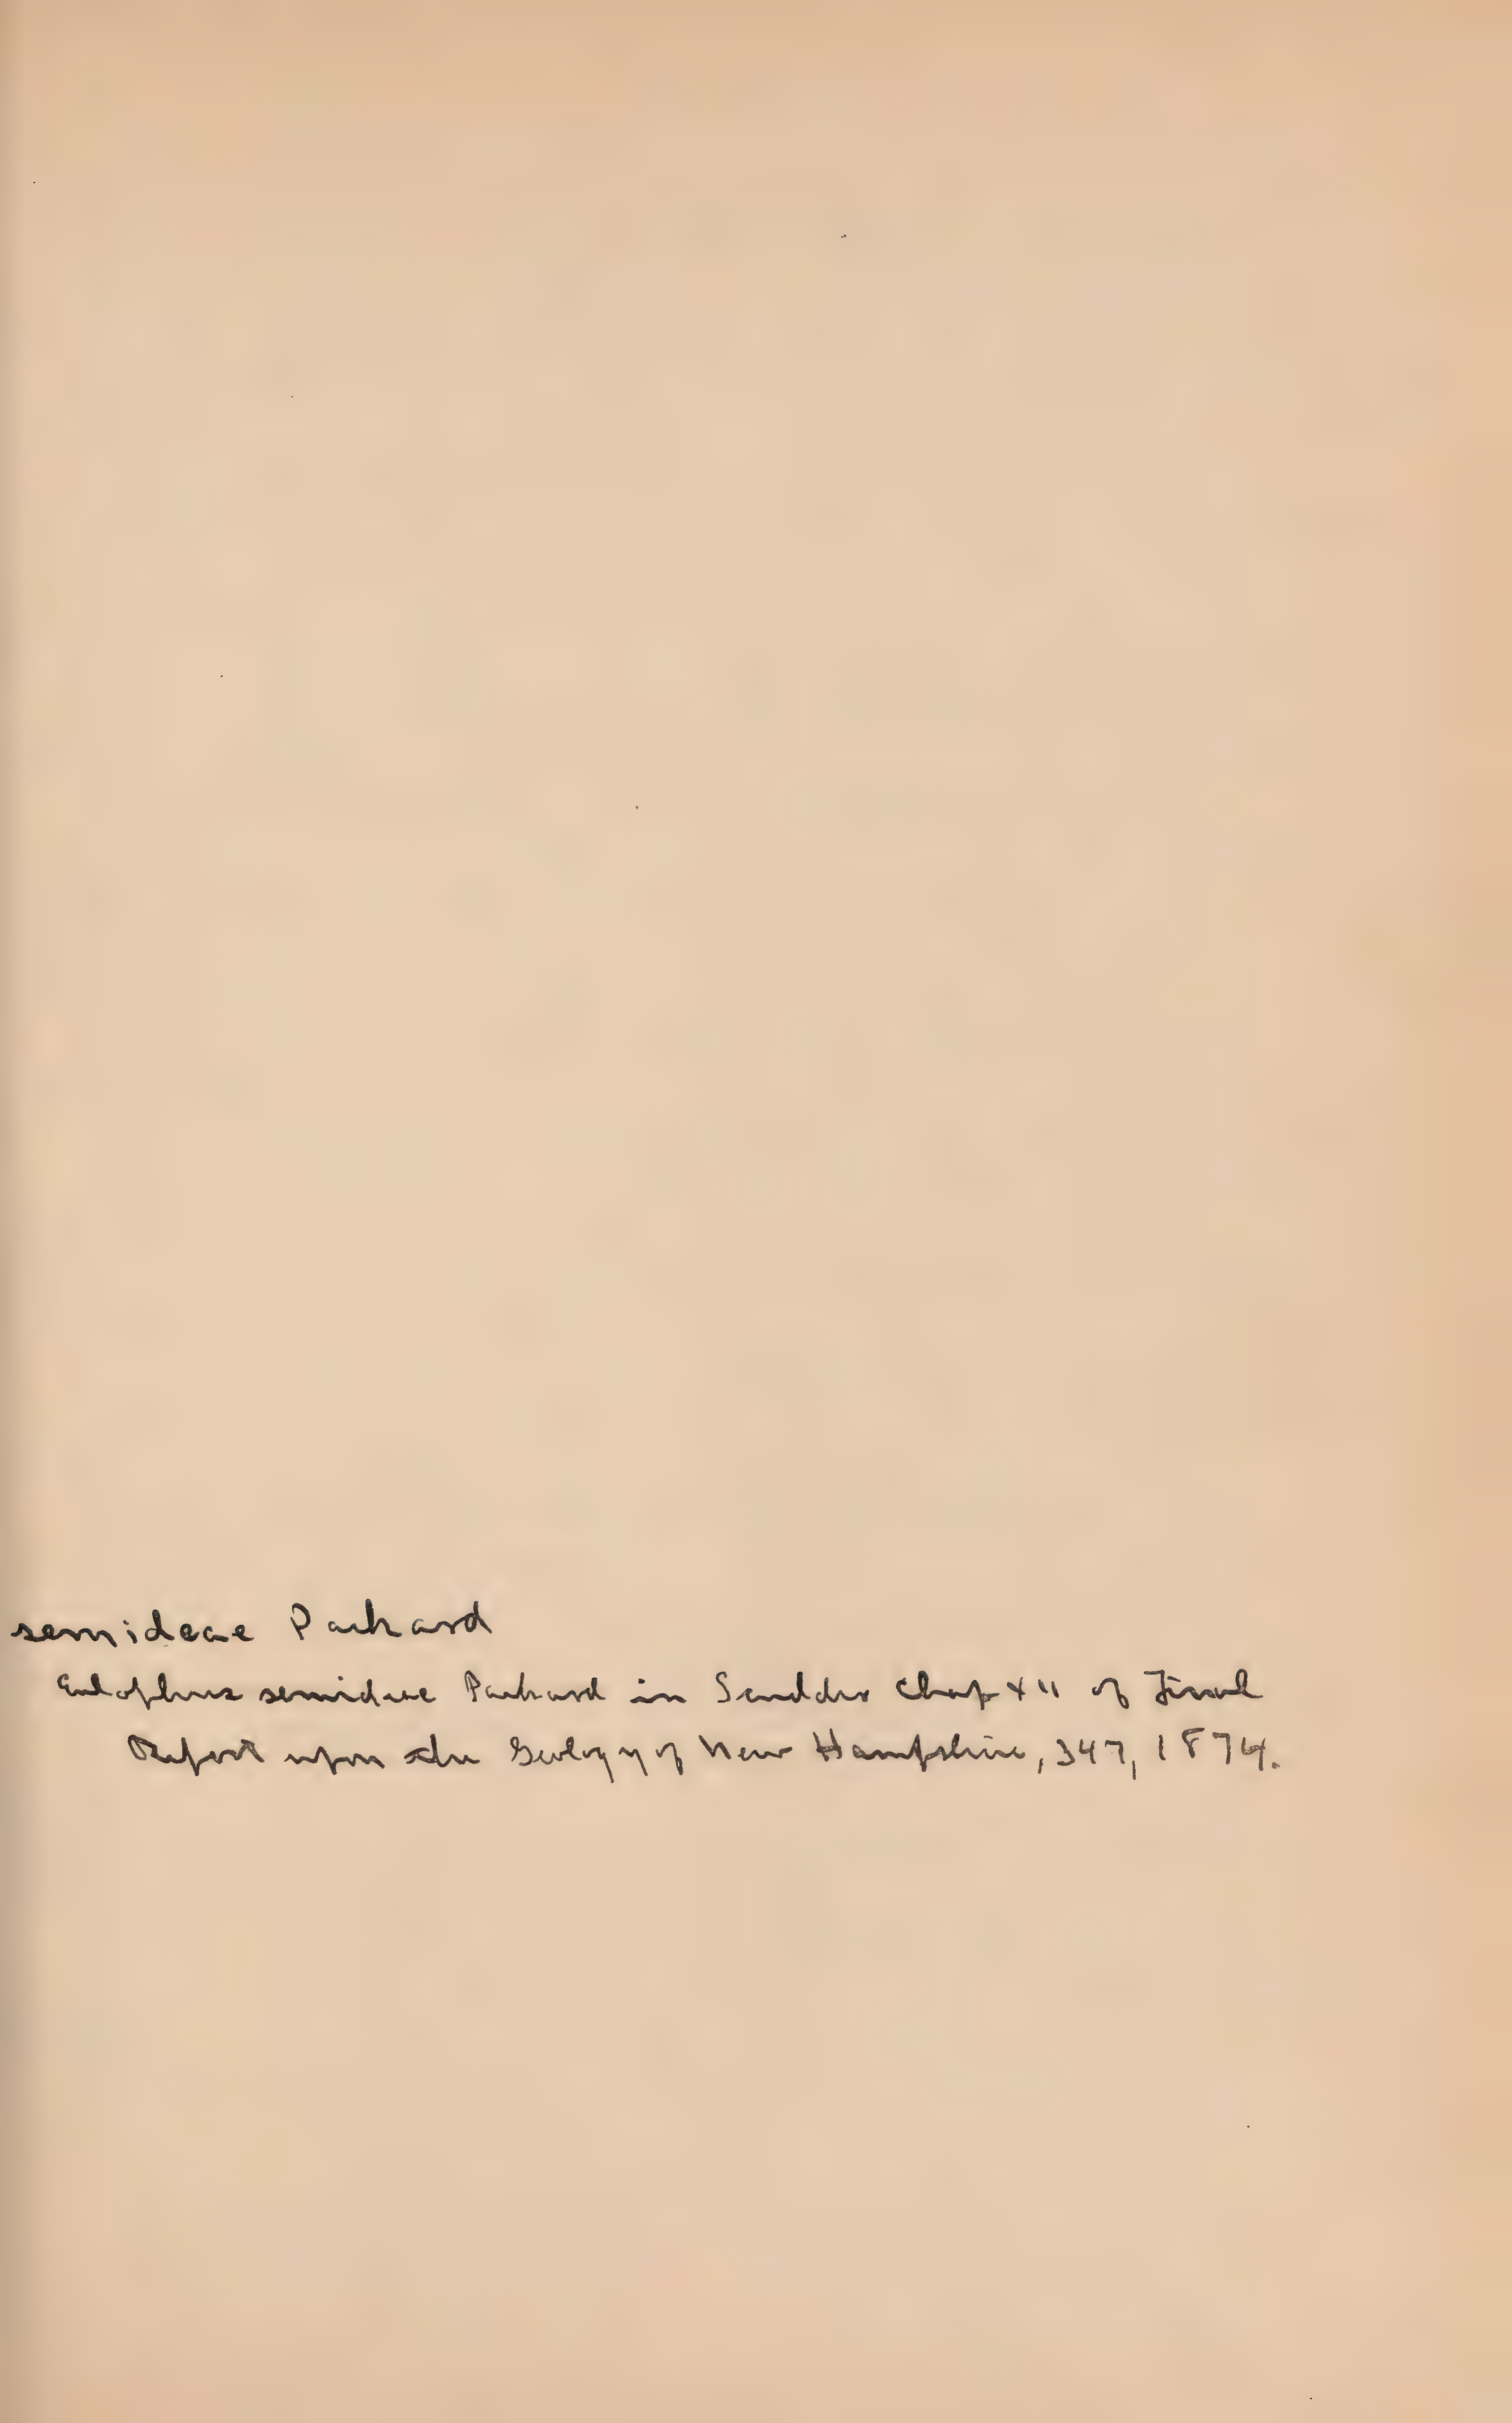 semideae Packard
Eulophus semideae Packard in Scudder Chap XII of Final
Report upon the Geology of New Hampshire, 347, 1874.